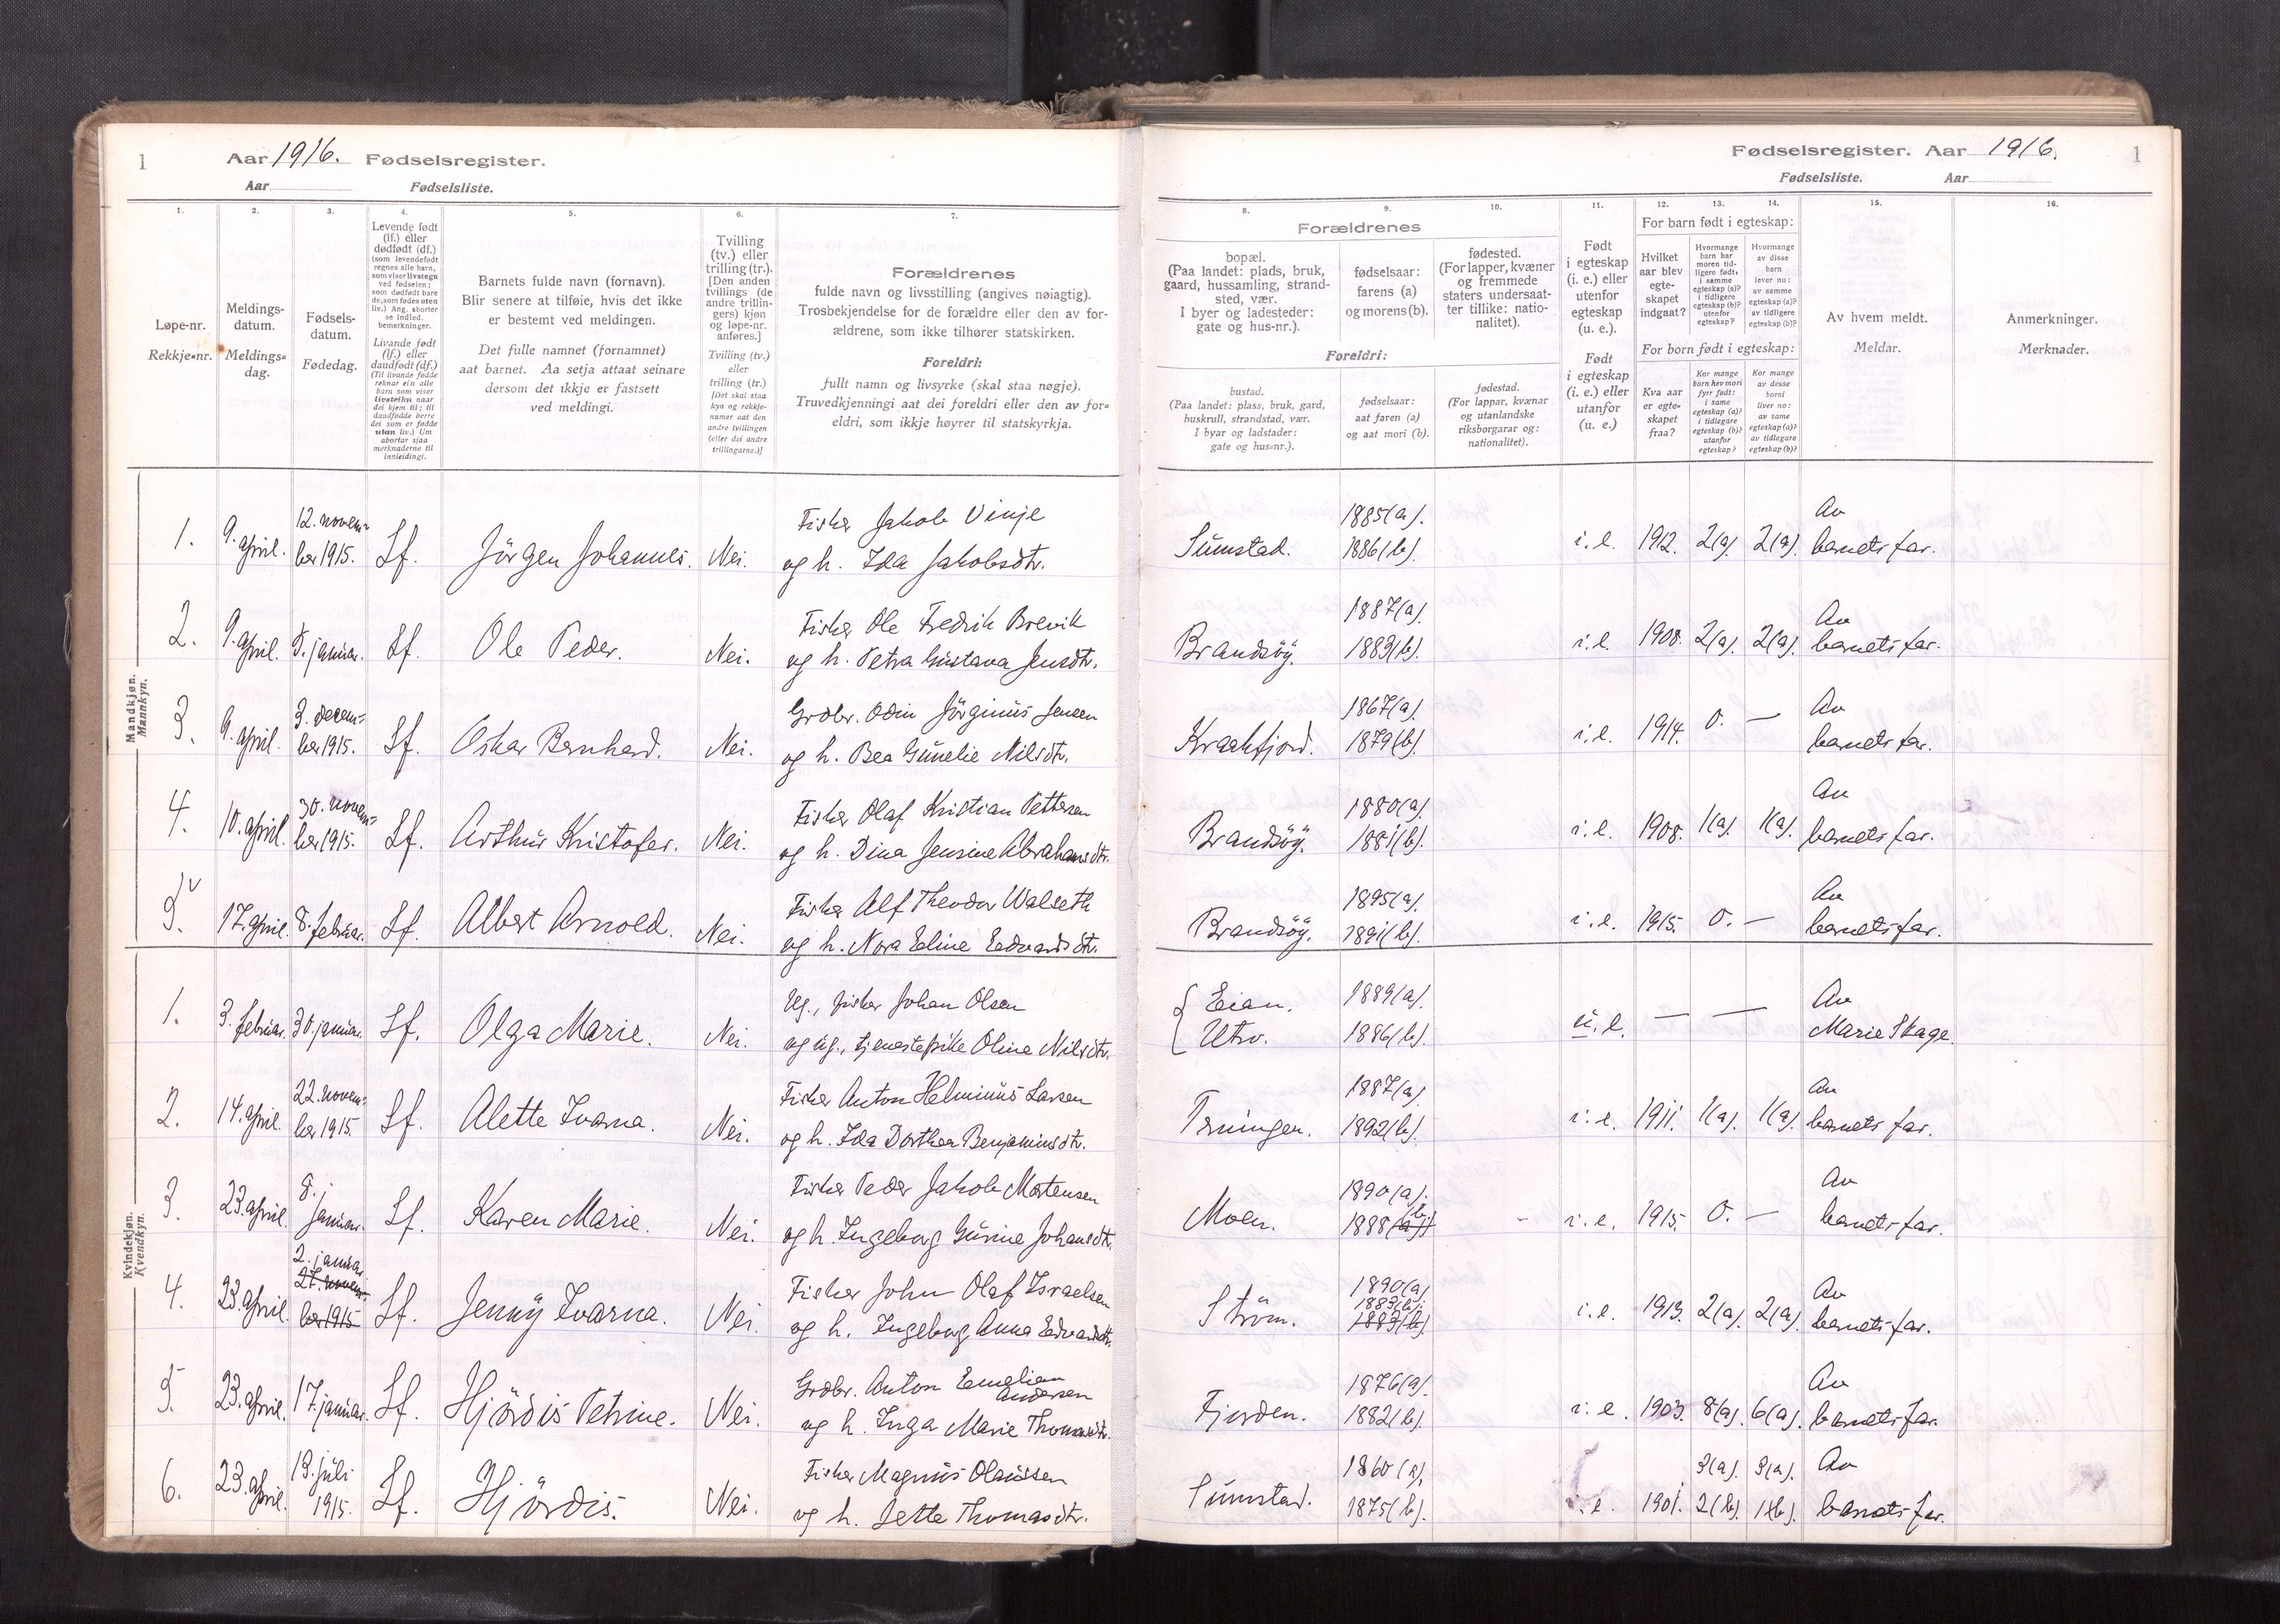 1
Aar 1916. Fødselsregister.
Aar Fødselsliste.
1.
2.
3.
4.
5.
6.
7.
Løpe-nr.
Rekkje-nr.
Meldings-
datum.
Meldings-
dag.
Fødsels-
datum.
Fødedag.
Levende født
(lf.) eller
dødfødt (df.)
(som levendefødt
regnes alle barn,
som viser livstegn
ved fødselen;
som dødfødt bare
de, som fødes uten
liv.) Ang. aborter
se indled.
bemerkninger.
Livande født
(lf.) eller
daudfødt (df.)
(Til livande fødde
reknar ein alle
barn som viser
livsteikn naar
dei kjem til; til
daudfødde berre
dei som er fødde
utan liv.) Um
abortar sjaa
merknaderne til
innleidingi.
Barnets fulde navn (fornavn).
Blir senere at tilføie, hvis det ikke
er bestemt ved meldingen.
Det fulle namnet (fornamnet)
aat barnet. Aa setja attaat seinare
dersom det ikkje er fastsett
ved meldingi.
Tvilling
(tv.) eller
trilling (tr.).
[Den anden
tvillings (de
andre trillin-
gers) kjøn
og løpe-nr.
anføres.]
Tvilling (tv.)
eller
trilling (tr.)
[Det skal staa
kyn og rekkje-
numer aat den
andre tvillingen
(eller dei andre
trillingarne.)]
Forældrenes
fulde navn og livsstilling (angives nøiagtig).
Trosbekjendelse for de forældre eller den av for-
ældrene, som ikke tilhører statskirken.
Foreldri:
fullt namn og livsyrke (skal staa nøgje).
Truvedkjenningi aat dei foreldri eller den av for-
eldri, som ikkje høyrer til statskyrkja.
Mandkjøn.
Mannkyn.
1. 9. april. 12. novem-
ber 1915. Lf. Jörgen Johannes. Nei. Fisker Jakob Vinje
og h. Ida Jakobsdtr.
2. 9. april. 5. januar. Lf. Ole Peder. Nei. Fisker Ole Fredrik Brevik
og h. Petra Gustava Jensdtr.
3. 9. april. 3. decem-
ber 1915. Lf. Oskar Bernhard. Nei. Grdbr. Odin Jörginus Jensen
og h. Bea Gunelie Nilsdtr.
4. 10. april. 30. novem-
ber 1915. Lf. Arthur Kristofer. Nei. Fisker Olaf Kristian Pettersen
og h. Dina Jensine Abrahamsdtr.
5. 17. april. 8. februar. Lf. Albert Arnold. Nei. Fisker Alf Theodor Walseth
og h. Nora Eeline Eedvardsdtr.
Kvindekjøn.
Kvendkyn.
1. 3. februar. 30. januar. Lf. Olga Marie. Nei. Ug., fisker Johan Olsen
og ug., tjenestepike Oline Nilsdtr.
2. 14. april. 22. novem-
ber 1915. Lf. Alette Ivarna. Nei. Fisker Anton Helminus Larsen
og h. Ida Dorthea Benjaminsdtr.
3. 23. april. 8. j
januar. Lf. Karen Marie. Nei. Fisker Peder Jakob Mortensen
og h. Ingeborg Gurine Johansdtr.
4. 23. april. 2. januar
27. novem-
ber 1915 Lf. Jenny Ivarna. Nei. Fisker John Olaf Israelsen
og h. Ingeborg Anna Eedvardsdtr.
5. 23. april. 17. januar. Lf. Hjördis Petrine. Nei. Grdbr. Anton Eemelian
Andersen
og h. Inga Marie Thomasdtr.
6. 23. april. 13. juli
1915. Lf. Hjördis. Nei. Fisker Magnus Olaussen
og h. Jette Thomasdtr.
Fødselsregister. Aar 1916. 1
Fødselsliste. Aar
8.
9.
10.
11.
12.
13.
14.
15.
16.
Forældrenes
bopæl.
(Paa landet: plads, bruk,
gaard, hussamling, strand-
sted, vær.
I byer og ladesteder:
gate og hus-nr.).
fødselsaar:
farens (a)
og morens (b).
fødested.
(For lapper, kvæner
og fremmede
staters undersaat-
ter tillike: natio-
nalitet).
Foreldri:
bustad.
(Paa landet: plass, bruk, gard,
huskrull, strandstad, vær.
I byar og ladstader:
gate og hus-nr.).
fødselsaar:
aat faren (a)
og aat mori (b).
fødestad.
(For lappar, kvænar
og utanlandske
riksborgarar og:
nationalitet).
Født
i egteskap
(i. e.) eller
utenfor
egteskap
(u. e.).
Født
i egteskap
(i. e.) eller
utanfor
(u. e.)
For barn født i egteskap:
Hvilket
aar blev
egte-
skapet
indgaat?
Hvormange
barn har
moren tid-
ligere født,
i samme
egteskap (a)?
i tidligere
egteskap (b)?
utenfor
egteskap?
Hvormange
av disse
barn
lever nu:
av samme
egteskap (a)?
av tidligere
egteskap (b)?
For born født i egteskap:
Kva aar
er egte-
skapet
fraa?
Kor mange
born hev mori
fyrr født:
i same
egteskap (a)?
i tidlegare
egteskap (b)?
utanfor
egteskap?
Kor mange
av desse
borni
liver no:
av same
egteskap (a)?
av tidlegare
egteskap (b)?
Av hvem meldt.
Meldar.
Anmerkninger.
Merknader.
Sumstad. 1885 (a).
1886 (b). i. e. 1912. 2 (a). 2 (a). Av
barnets far.
Brandsöy. 1887 (a).
1883 (b). i. e. 1908. 2 (a). 2 (a). Av
barnets far.
Kraakfjord. 1867 (a).
1879 (b). i. e. 1914. 0. — Av
barnets far.
Brandsöy. 1880 (a).
1881 (b). i. e. 1908. 1 (a). 1 (a). Av
barnets far.
Brandsöy. 1895 (a).
1891 (b). i. e. 1915. 0. — Av
barnets far.
Eian.
Utv. 1889 (a).
1886 (b). u. e. — — Av
Marie Skage.
Terningen. 1887 (a).
1892 (b). i. e. 1911. 1 (a). 1 (a). Av
barnets far.
Moen. 1890 (a).
1888 (a) b. i. e. 1915. 0. — Av
barnets far.
Ström. 1890 (a)
1883 (b).
1883 (b). i. e. 1913. 2 (a). 2 (a). Av
barnets far.
Fjorden. 1876 (a).
1882 (b). i. e. 1903. 8 (a). 6 (a). Av
barnets far.
Sumstad. 1860 (a).
1875 (b). i. e. 1901. 3 (a). 3 (a).
2 (b). 1 (b). Av
barnets far.